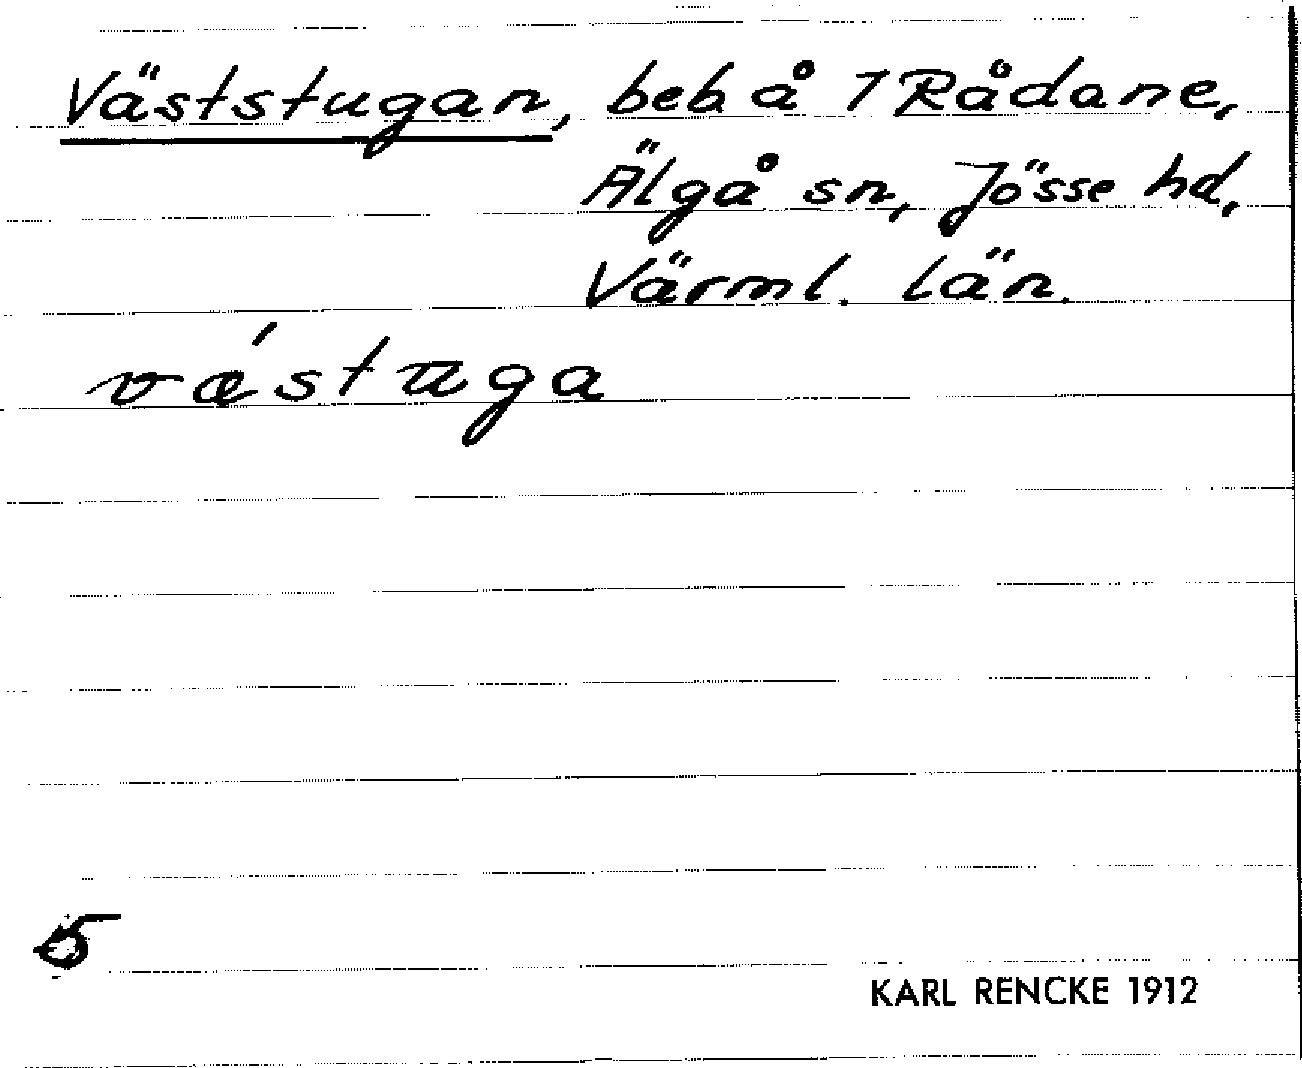 Väststugan, beb å 7 Rådane,
Älgå sn, Jösse hd,
Värml. län.
væ´stuga
5
KARL RENCKE 1912